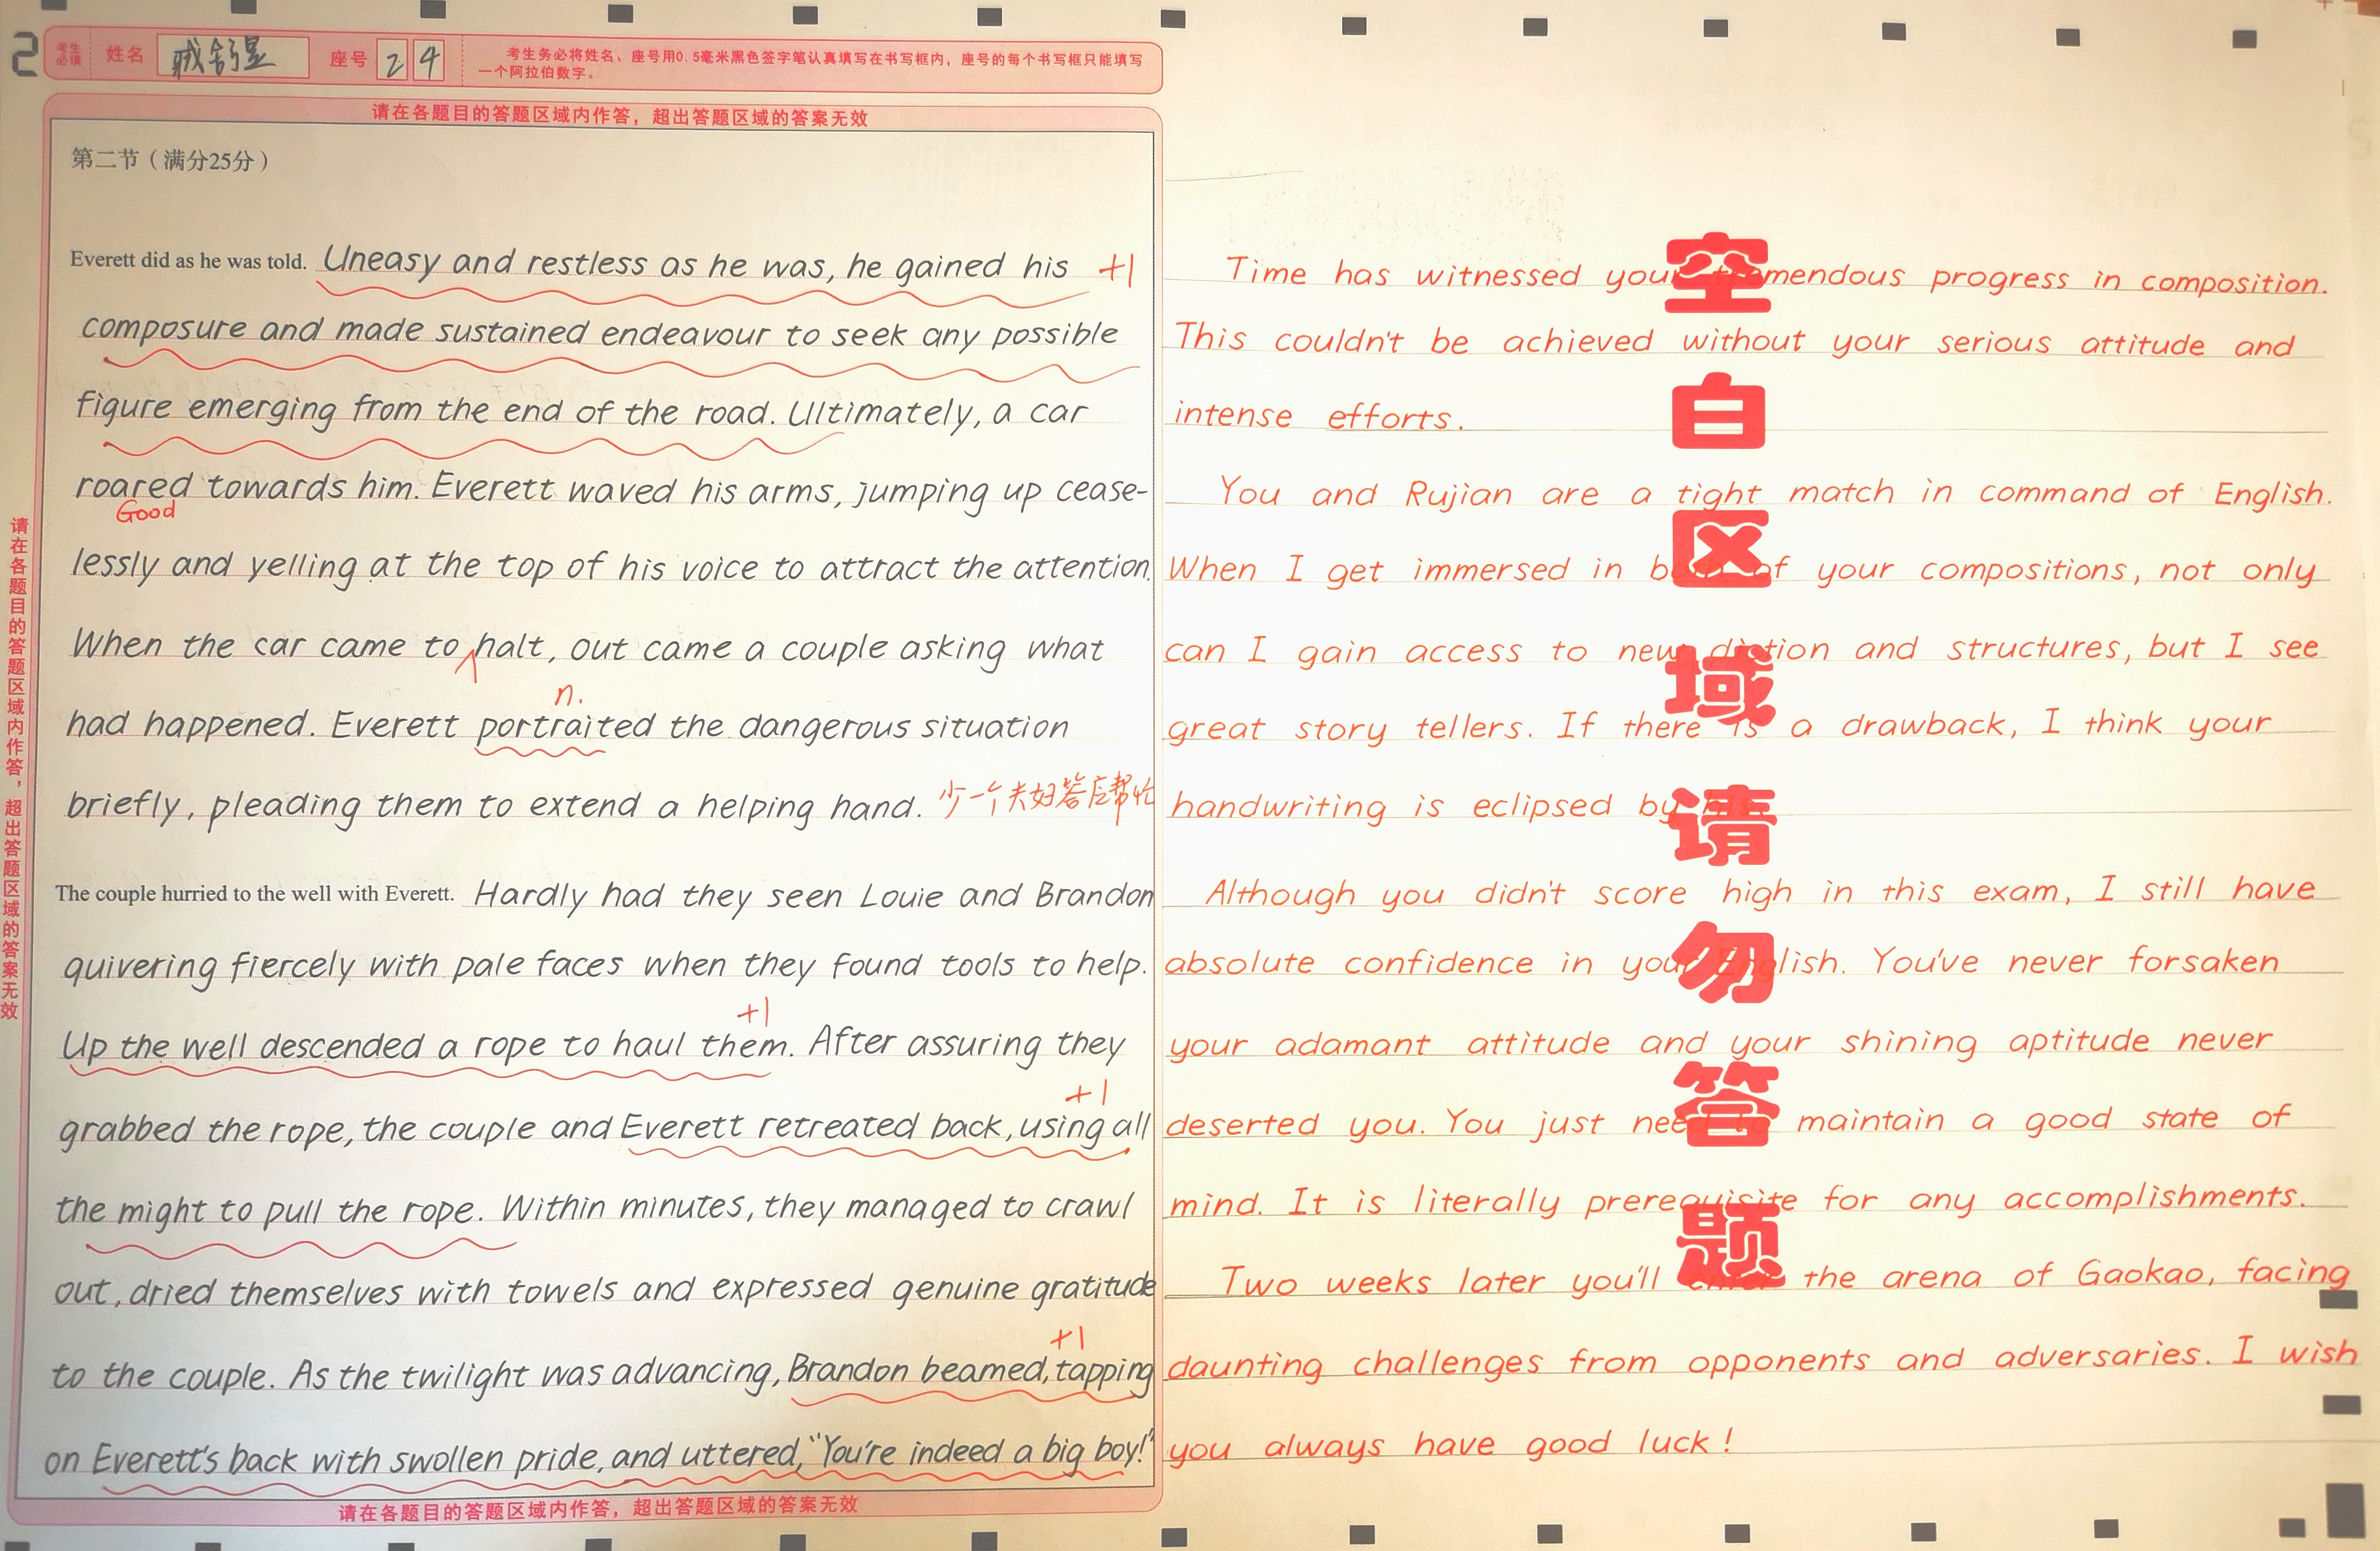 2
考生必填
姓名 戚舒昱 座号 2 4
考生务必将姓名、座号用0.5毫米黑色签字笔认真填写在书写框内，座号的每个书写框只能填写
一个阿拉伯数字。
请在各题目的答题区域内作答，超出答题区域的答案无效
第二节（满分25分）
Everett did as he was told. Uneasy and restless as he was, he gained his +1
composure and made sustained endeavour to seek any possible
figure emerging from the end of the road. Ultimately, a car
roared towards him. Everett waved his arms, jumping up cease-
Good
lessly and yelling at the top of his voice to attract the attention.
When the car came to halt, out came a couple asking what
n.
had happened. Everett portraited the dangerous situation
briefly, pleading them to extend a helping hand. 少一个夫妇答应帮忙
The couple hurried to the well with Everett. Hardly had they seen Louie and Brandon
quivering fiercely with pale faces when they found tools to help.
+1
Up the well descended a rope to haul them. After assuring they
+1
grabbed the rope, the couple and Everett retreated back, using all
the might to pull the rope. Within minutes, they managed to crawl
out, dried themselves with towels and expressed genuine gratitude
+1
to the couple. As the twilight was advancing, Brandon beamed, tapping
on Everett's back with swollen pride, and uttered, "You're indeed a big boy!"
请在各题目的答题区域内作答，超出答题区域的答案无效
请在各题目的答题区域内作答，超出答题区域的答案无效
Time has witnessed your tremendous progress in composition.
This couldn't be achieved without your serious attitude and
intense efforts.
You and Rujian are a tight match in command of English.
When I get immersed in both of your compositions, not only
can I gain access to new diction and structures, but I see
great story tellers. If there is a drawback, I think your
handwriting is eclipsed by his.
Although you didn't score high in this exam, I still have
absolute confidence in your English. You've never forsaken
your adamant attitude and your shining aptitude never
deserted you. You just need to maintain a good state of
mind. It is literally prerequisite for any accomplishments.
Two weeks later you'll enter the arena of Gaokao, facing
daunting challenges from opponents and adversaries. I wish
you always have good luck!
空白区域请勿答题